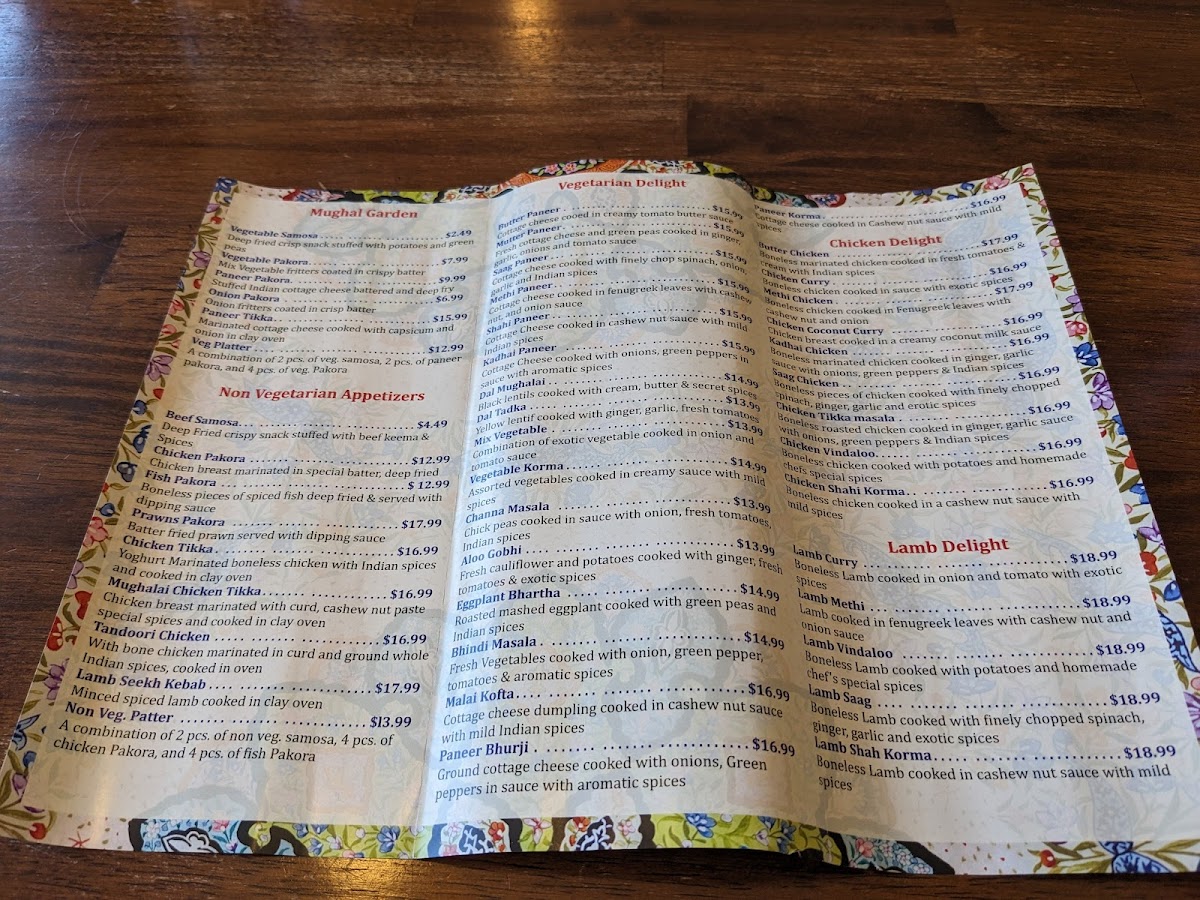 Mughal Garden
Vegetable Samosa........................$2.49
Deep fried crisp snack stuffed with potatoes and green
peas
Vegetable Pakora........................$7.99
Mix Vegetable fritters coated in crispy batter
Paneer Pakora........................$9.99
Stuffed Indian cottage cheese battered and deep fry
Onion Pakora........................$6.99
Onion fritters coated in crisp batter
Paneer Tikka........................$15.99
Marinated cottage cheese cooked with capsicum and
onion in clay oven
Veg Platter........................$12.99
A combination of 2 pcs. of veg. samosa, 2 pcs. of paneer
pakora, and 4 pcs. of veg. Pakora
Non Vegetarian Appetizers
Beef Samosa........................$4.49
Deep Fried crispy snack stuffed with beef keema &
Spices
Chicken Pakora........................$12.99
Chicken breast marinated in special batter, deep fried
Fish Pakora........................$ 12.99
Boneless pieces of spiced fish deep fried & served with
dipping sauce
Prawns Pakora........................$17.99
Batter fried prawn served with dipping sauce
Chicken Tikka........................$16.99
Yoghurt Marinated boneless chicken with Indian spices
and cooked in clay oven
Mughalai Chicken Tikka........................$16.99
Chicken breast marinated with curd, cashew nut paste
special spices and cooked in clay oven
Tandoori Chicken........................$16.99
With bone chicken marinated in curd and ground whole
Indian spices, cooked in oven
Lamb Seekh Kebab........................$17.99
Minced spiced lamb cooked in clay oven
Non Veg. Patter........................$13.99
A combination of 2 pcs. of non veg. samosa, 4 pcs. of
chicken Pakora, and 4 pcs. of fish Pakora
Vegetarian Delight
Butter Paneer........................$15.99
Cottage cheese cooed in creamy tomato butter sauce
Mutter Paneer........................$15.99
Fresh cottage cheese and green peas cooked in ginger,
garlic, onions and tomato sauce
Saag Paneer........................$15.99
Cottage cheese cooked with finely chop spinach, onion,
garlic and Indian spices
Methi Paneer........................$15.99
Cottage cheese cooked in fenugreek leaves with cashew
nut, and onion sauce
Shahi Paneer........................$15.99
Cottage Cheese cooked in cashew nut sauce with mild
Indian spices
Kadhai Paneer........................$15.99
Cottage Cheese cooked with onions, green peppers in
sauce with aromatic spices
Dal Mughalai........................$14.99
Black lentils cooked with cream, butter & secret spices
Dal Tadka........................$13.99
Yellow lentif cooked with ginger, garlic, fresh tomatoes
Mix Vegetable........................$13.99
Combination of exotic vegetable cooked in onion and
tomato sauce
Vegetable Korma........................$14.99
Assorted vegetables cooked in creamy sauce with mild
spices
Channa Masala........................$13.99
Chick peas cooked in sauce with onion, fresh tomatoes,
Indian spices
Aloo Gobhi........................$13.99
Fresh cauliflower and potatoes cooked with ginger, fresh
tomatoes & exotic spices
Eggplant Bhartha........................$14.99
Roasted mashed eggplant cooked with green peas and
Indian spices
Bhindi Masala........................$14.99
Fresh Vegetables cooked with onion, green pepper,
tomatoes & aromatic spices
Malai Kofta........................$16.99
Cottage cheese dumpling cooked in cashew nut sauce
with mild Indian spices
Paneer Bhurji........................$16.99
Ground cottage cheese cooked with onions, Green
peppers in sauce with aromatic spices
Paneer Korma........................$16.99
Cottage cheese cooked in Cashew nut sauce with mild
spices
Chicken Delight
Butter Chicken........................$17.99
Boneless marinated chicken cooked in fresh tomatoes &
cream with Indian spices
Chicken Curry........................$16.99
Boneless chicken cooked in sauce with exotic spices
Methi Chicken........................$17.99
Boneless chicken cooked in Fenugreek leaves with
cashew nut and onion
Chicken Coconut Curry........................$16.99
Chicken breast cooked in a creamy coconut milk sauce
Kadhai Chicken........................$16.99
Boneless marinated chicken cooked in ginger, garlic
sauce with onions, green peppers & Indian spices
Saag Chicken........................$16.99
Boneless pieces of chicken cooked with finely chopped
spinach, ginger, garlic and erotic spices
Chicken Tikka masala........................$16.99
Boneless roasted chicken cooked in ginger, garlic sauce
with onions, green peppers & Indian spices
Chicken Vindaloo........................$16.99
Boneless chicken cooked with potatoes and homemade
chefs special spices
Chicken Shahi Korma........................$16.99
Boneless chicken cooked in a cashew nut sauce with
mild spices
Lamb Delight
Lamb Curry........................$18.99
Boneless Lamb cooked in onion and tomato with exotic
spices
Lamb Methi........................$18.99
Lamb cooked in fenugreek leaves with cashew nut and
onion sauce
Lamb Vindaloo........................$18.99
Boneless Lamb cooked with potatoes and homemade
chef's special spices
Lamb Saag........................$18.99
Boneless Lamb cooked with finely chopped spinach,
ginger, garlic and exotic spices
Lamb Shah Korma........................$18.99
Boneless Lamb cooked in cashew nut sauce with mild
spices